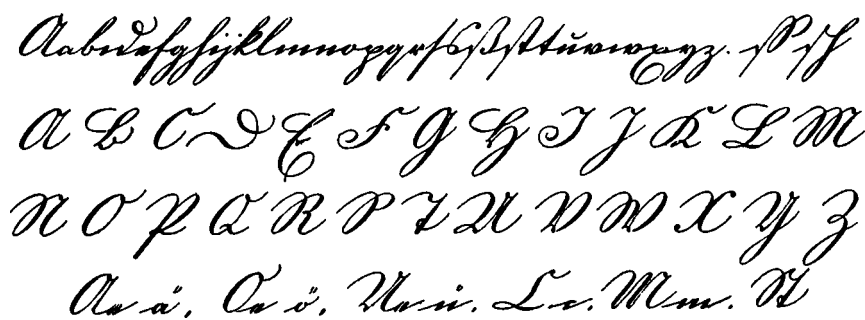 Aabcdefghijklmnopqrſsſßſttŭvwxyz. ſP ſch
A B C D E F G H I J K L M
N O P Q R S T U V W X Y Z
Ae ä. Oe ö. Ue ü. C c. M m. St